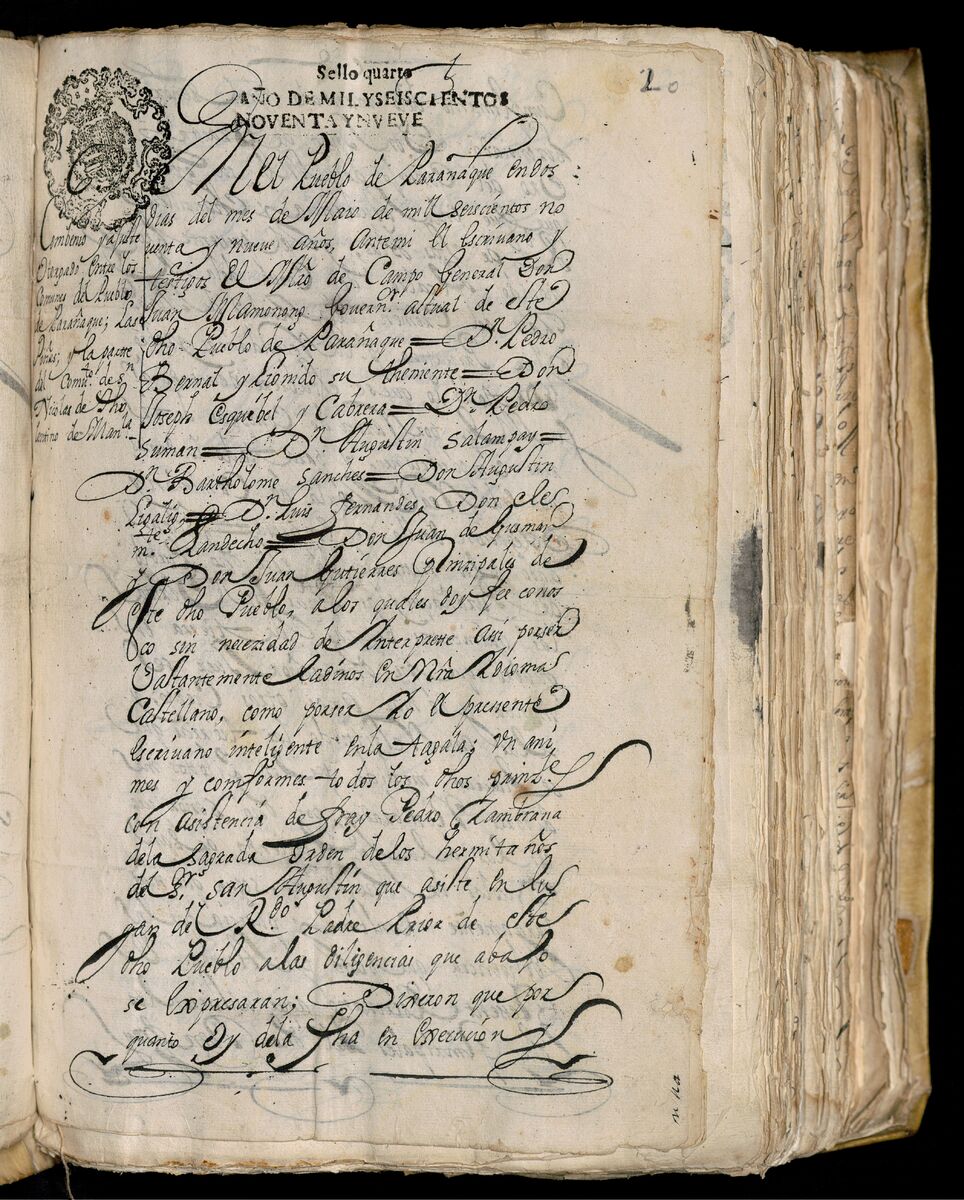 Sello quarto
20
AÑO DE MIL Y SEISCIENTOS
NOVENTA Y NVEVE
Combenio y ajuste
Otorgado entre los
Comunes del Pueblo
de Parañaque; Las
y la parte
del Comto. de Sn
Nicolas de Tho
lentino de Manla.
En el Pueblo de Parañaque en dos
dias del mes de Maio de mill seiscientos no
uenta y nueve años, antemi el Escrivano y
testigos El Mño de Campo General Don
Juan Mamonong Governr. actual de este
dho Pueblo de Parañaque = Dn. Pedro
Bernal y su theniente = Don
Joseph Esquibel y Cabrera = Dn. Pedro
Suman = Dn. Augustin Salampay =
Dn. Bartholome Sanches = Don Augustin
Ligalig = Dn. Luis Fernandes Don Cle
mte. Landecho = Don Juan de Gusman
y Don Juan Gutierres Prinzipales de
este dho Pueblo, a los quales doy fee conos
co sin neceridad de Interprette asi porser
Vastantemente ladinos en Nra Idioma
Castellano, como porser Io el pressente
Escrivano inteligente en la Tagala; Vnani
mes y comformes todos los dhos prinzles
con asistencia de fray Pedro Zambrana
dela Sagrada Orden delos hermitaños
del Sr. san Augustin que asiste en lu
gar de el Rdo. Padre Prior de este
dho Pueblo a las diligencias que abajo
se Expresaran; Dixeron que por
quanto Oy dela fha en Execución y